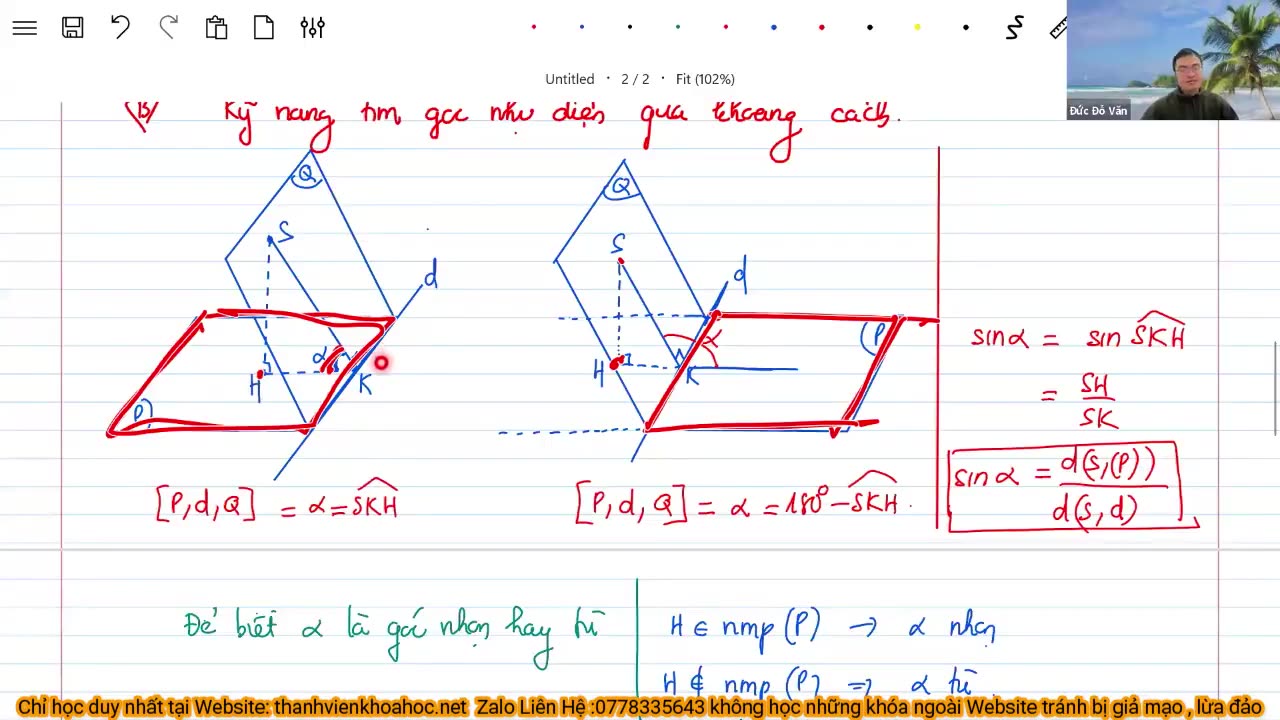 Untitled · 2 / 2 · Fit (102%)
Đức Đỗ Văn
B) Kỹ năng tìm góc nhị diện qua khoảng cách.
Q
Q
S
S
d
d
α
α
(P
H
K
H
K
P)
sinα = sin SKH
= SH / SK
sinα = d(S,(P)) / d(S,d)
[P,d,Q] = α = SKH
[P,d,Q] = α = 180° - SKH.
Để biết α là góc nhọn hay tù
H ∈ nmp (P) → α nhọn
H ∉ nmp (P) ⇒ α tù
Chỉ học duy nhất tại Website: thanhvienkhoahoc.net Zalo Liên Hệ :0778335643 không học những khóa ngoài Website tránh bị giả mạo , lừa đảo